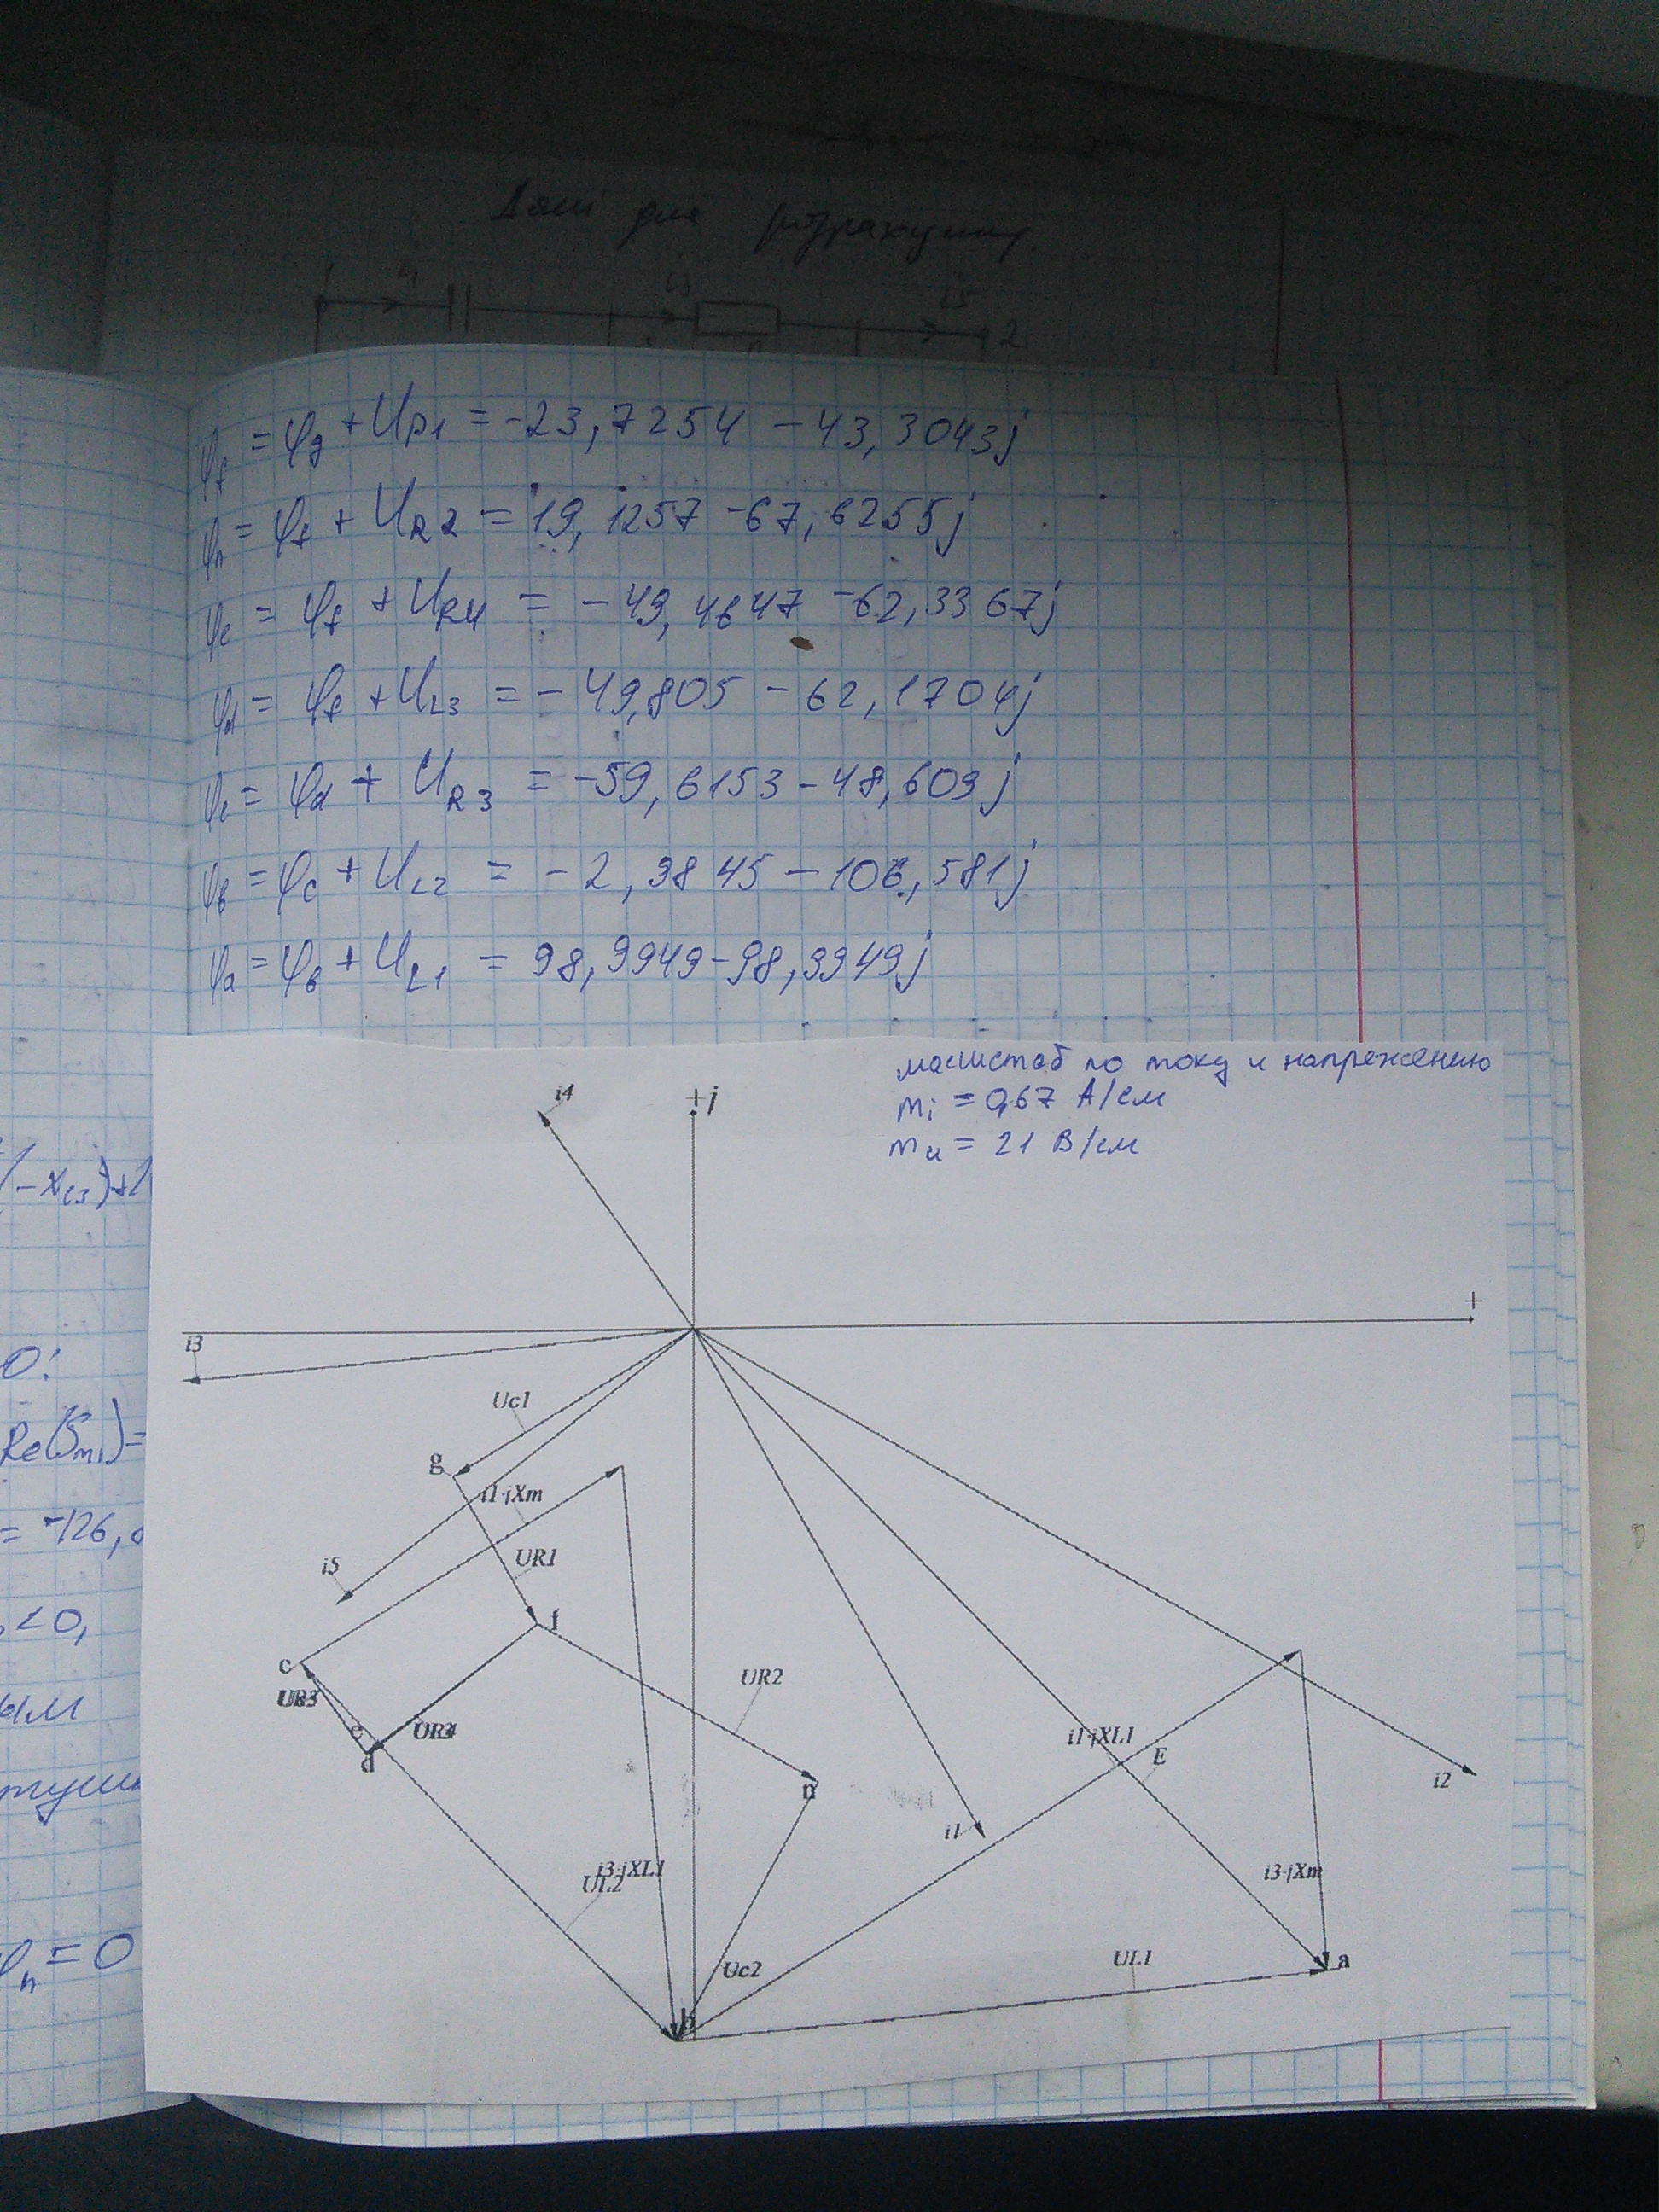 Дані для розрахунку.
i1
i3
i5
2
φf = φg + UR1 = -23,7254 - 43,3043j
φn = φf + UR2 = 19,1257 - 67,6255j
φe = φf + UR4 = -49,4647 - 62,3367j
φd = φf + UL3 = -49,805 - 62,1704j
φc = φd + UR3 = -59,6153 - 48,609j
φв = φc + UL2 = -2,3845 - 106,581j
φa = φв + UL1 = 98,9949 - 98,9949j
масштаб по току и напрежению
mi = 0,67 А/см
mu = 21 В/см
i4
+j
+
i3
Uc1
g
i1·jXm
i5
UR1
f
c
UR3
UR2
e
UR4
d
i1·jXL1
E
n
i2
i1
i3·jXL1
UL2
i3·jXm
Uc2
UL1
a
b
(-xL3)+
0:
Re(Sm1)=
= -126,
<0,
φn = 0